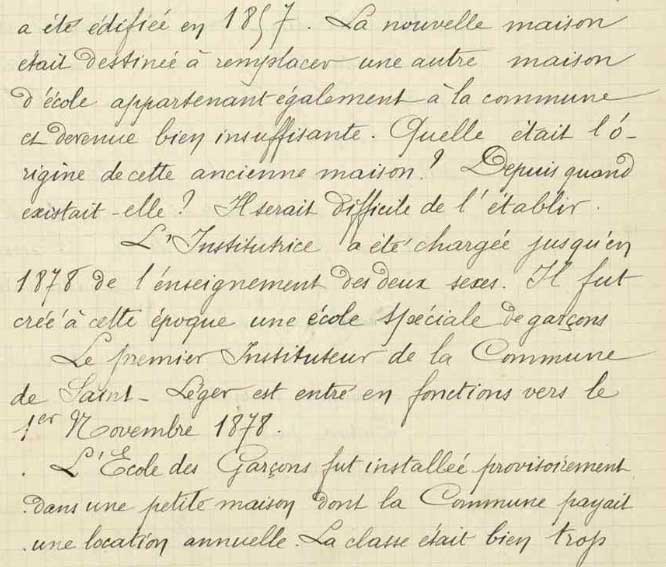 a été édifiée en 1857. La nouvelle maison
était destinée à remplacer une autre maison
d'école appartenant également à la commune
et devenue bien insuffisante. Quelle était l'o-
rigine de cette ancienne maison ? Depuis quand
existait-elle ? Il serait difficile de l'établir.
L'Institutrice a été chargée jusqu'en
1878 de l'enseignement des deux sexes. Il fut
créé à cette époque une école spéciale de garçons
Le premier Instituteur de la Commune
de Saint-Léger est entré en fonctions vers le
1er Novembre 1878.
L'École des Garçons fut installée provisoirement
dans une petite maison dont la Commune payait
une location annuelle. La classe était bien trop